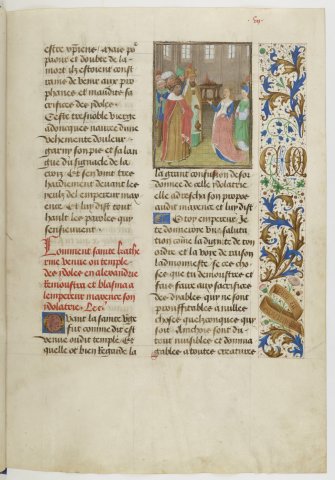 estre crestiens. Mais po͛
paour et doubte de la
mort ilz estoient const
rains de venir aux pro
phanes et maudis sa
crifices des ydoles.
Ceste tresnoble vierge
adoncques navree dune
vehemente douleur
garny son pis et sa lan
gue du signacle de la
croix. Et sen vint tres
hardiement devant les
yeulz de lempereur max
ence. Et luy dist tout
hault les paroles qui
sensieuvent.
Comment sainte kathe
rine venue ou temple
des ydoles en alexandrie
remoustra et blasma a
lempereur maxence son
ydolatrie.
Quant la sainte vierge
fut comme dit est
venue oudit temple. Et
quelle et bien regarde la
la grant confusion desor
donnee de celle ydolatrie
elle adrescha son propos
audit maxence et luy dist
O toy empereur. Je
te donneroie vne saluta
tion come la dignite de ton
ordre et la voye de raison
ladmonneste se ces cho
ses que tu demoustres et
fais faire aux sacrifices
des dyables qui ne sont
prouffitables a nulles
choses quelzconques que
soit. Ainchois sont du
tout nuisibles et domma
gables a toutes creatures